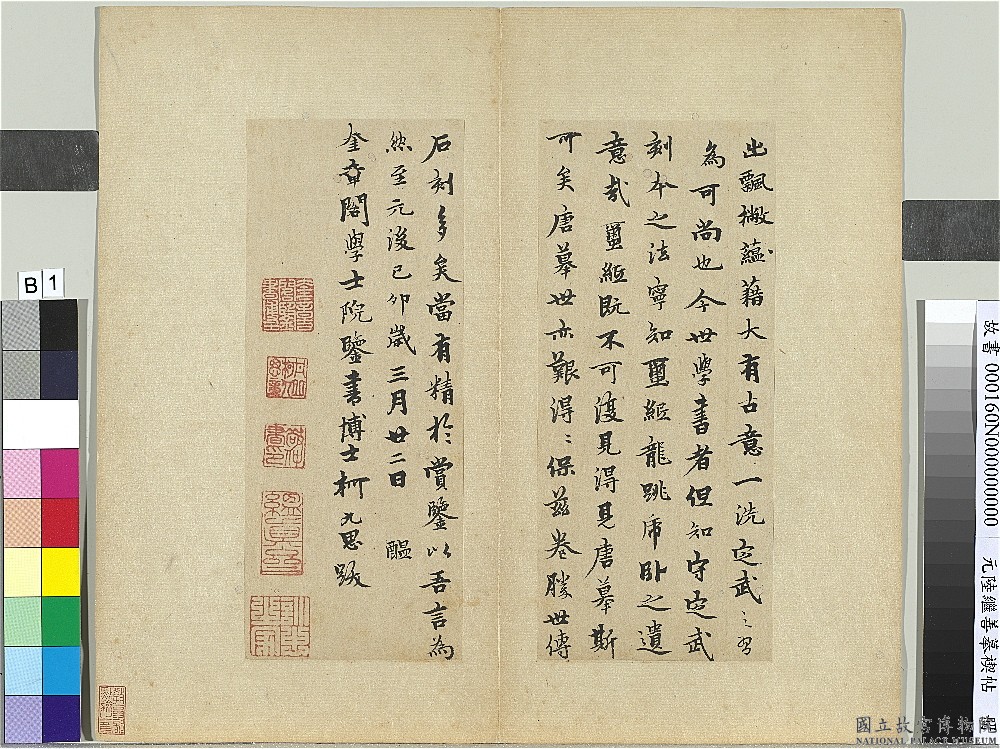 出飄撇蘊藉大有古意一洗定武之習
為可尚也今世學書者但知守定武
刻本之法寧知璽紙龍跳虎臥之遺
意哉璽紙既不可復見得見唐摹斯
可矣唐摹世亦艱得得保茲卷勝世傳
石刻多矣當有精於賞鑒以吾言為
然至元後己卯歲三月廿二日 醖
奎章閣學士院鑒書博士柯九思跋
B 1
故書 000160N000000000 元陸繼善摹禊帖
國立故宮博物院
NATIONAL PALACE MUSEUM